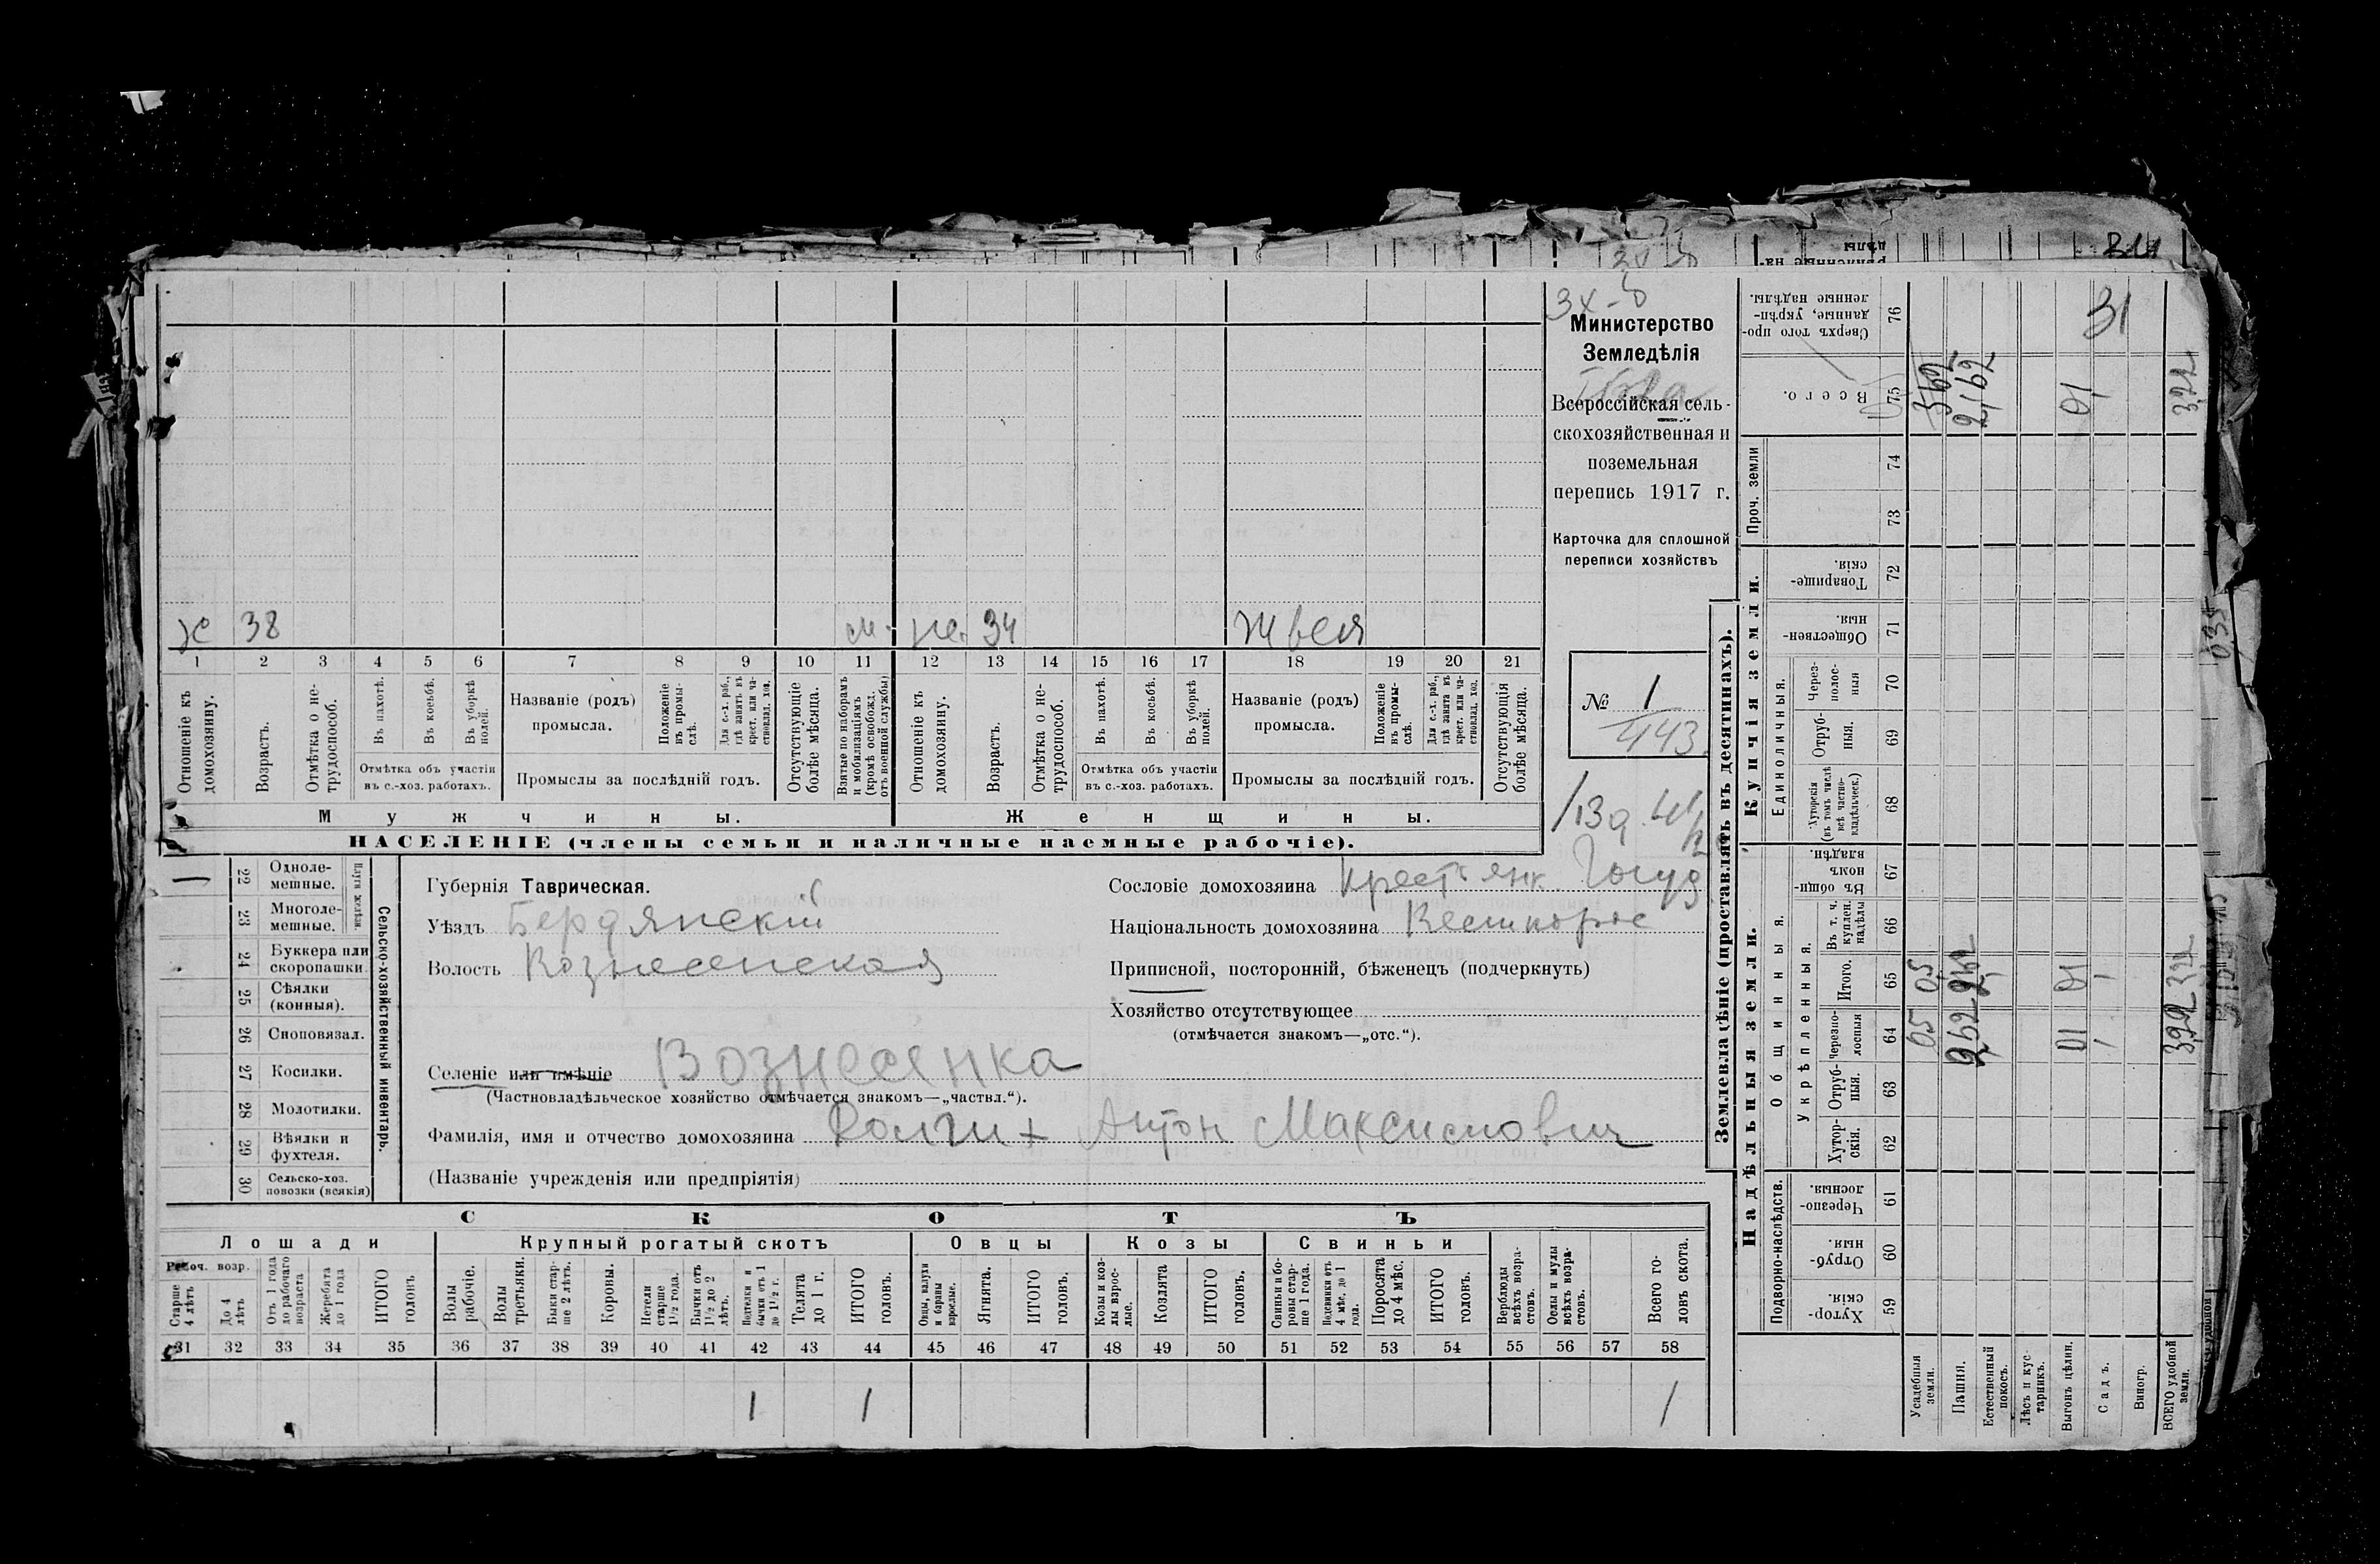 Министерство
Земледѣлія
Всероссійская сель-
скохозяйственная и
поземельная
перепись 1917 г.
Карточка для сплошной
переписи хозяйствъ
№ 1
443
х 38 м. же. 34 швея
1 2 3 4 5 6 7 8 9 10 11 12 13 14 15 16 17 18 19 20 21
Отношеніе къ домохозяину.
Возрастъ.
Отмѣтка о не-трудоспособ.
Въ пахотѣ.
Въ косьбѣ.
Въ уборкѣ полей.
Отмѣтка объ участіи
въ с.-хоз. работахъ.
Названіе (родъ)
промысла.
Положеніе въ промы-слѣ.
Для с.-х. раб., гдѣ занятъ въ крест. или ча-стновлад. хоз.
Промыслы за послѣдній годъ.
Отсутствующіе болѣе мѣсяца.
Взятые по наборамъ и мобилизаціямъ (кромѣ освобожд. отъ военной службы)
Отношеніе къ домохозяину.
Возрастъ.
Отмѣтка о не-трудоспособ.
Въ пахотѣ.
Въ косьбѣ.
Въ уборкѣ полей.
Отмѣтка объ участіи
въ с.-хоз. работахъ.
Названіе (родъ)
промысла.
Положеніе въ промы-слѣ.
Для с.-х. раб., гдѣ занятъ въ крест. или ча-стновлад. хоз.
Промыслы за послѣдній годъ.
Отсутствующія болѣе мѣсяца.
Мужчины. Женщины.
НАСЕЛЕНІЕ (члены семьи и наличные наемные рабочіе).
Сельско-хозяйственный инвентарь.
Плуги желѣзн.
22 Одноле-мешные.
23 Многоле-мешные.
24 Буккера или скоропашки.
25 Сѣялки (конныя).
26 Сноповязал.
27 Косилки.
28 Молотилки.
29 Вѣялки и фухтеля.
30 Сельско-хоз. повозки (всякія)
Губернія Таврическая.
Уѣздъ Бердянскій
Волость Вознесенская
Селеніе или имѣніе Вознесенка
(Частновладѣльческое хозяйство отмѣчается знакомъ—„частвл.“).
Фамилія, имя и отчество домохозяина Долгих Антон Максимович
(Названіе учрежденія или предпріятія)
Сословіе домохозяина крестьянк. Госуд
Національность домохозяина Великорос
Приписной, посторонній, бѣженецъ (подчеркнуть)
Хозяйство отсутствующее
(отмѣчается знакомъ—„отс.“).
СКОТЪ
Лошади Крупный рогатый скотъ Овцы Козы Свиньи
Рабоч. возр.
Старше 4 лѣтъ
До 4 лѣтъ
Отъ 1 года до рабочаго возраста
Жеребята до 1 года
ИТОГО головъ
Волы рабочіе.
Волы третьяки.
Быки стар-ше 2 лѣтъ.
Коровы.
Нетели старше 1½ года.
Бычки отъ 1½ до 2 лѣтъ.
Подтелки и бычки отъ 1 до 1½ г.
Телята до 1 г.
ИТОГО головъ.
Овцы, валухи и бараны взрослые.
Ягнята.
ИТОГО головъ.
Козы и коз-лы взрос-лые.
Козлята
ИТОГО головъ.
Свиньи и бо-ровы стар-ше 1 года.
Подсвинки отъ 4 мѣс. до 1 года.
Поросята до 4 мѣс.
ИТОГО головъ.
Верблюды всѣхъ возра-стовъ.
Ослы и мулы всѣхъ возра-стовъ.
Всего го-ловъ скота.
31 32 33 34 35 36 37 38 39 40 41 42 43 44 45 46 47 48 49 50 51 52 53 54 55 56 57 58
1 1 1
Землевладѣніе (проставлять въ десятинахъ).
Надѣльныя земли. Купчія земли.
Подворно-наслѣдств.
Общинныя.
Укрѣпленныя.
Единоличныя.
Проч. земли
59 Хутор-скія.
60 Отруб-ныя.
61 Черезпо-лосныя.
62 Хутор-скія.
63 Отруб-ныя.
64 Черезпо-лосныя
65 Итого.
66 Въ т. ч. куплен. надѣлы
67 Въ общи-номъ владѣн.
68 Хуторскія (въ томъ числѣ всѣ частно-владѣльческ.)
69 Отруб-ныя.
70 Через-полос-ныя
71 Обществен-ныя.
72 Товарище-скія.
73
74
75 Всего.
76 Сверхъ того про-данные, укрѣп-ленные надѣлы.
Усадебныя земли. 05 05
Пашня.
Естественный покосъ.
Лѣсъ и кус-тарникъ.
Выгонъ цѣлин. 01 01 01
Садъ.
Виногр.
ВСЕГО удобной земли.
31